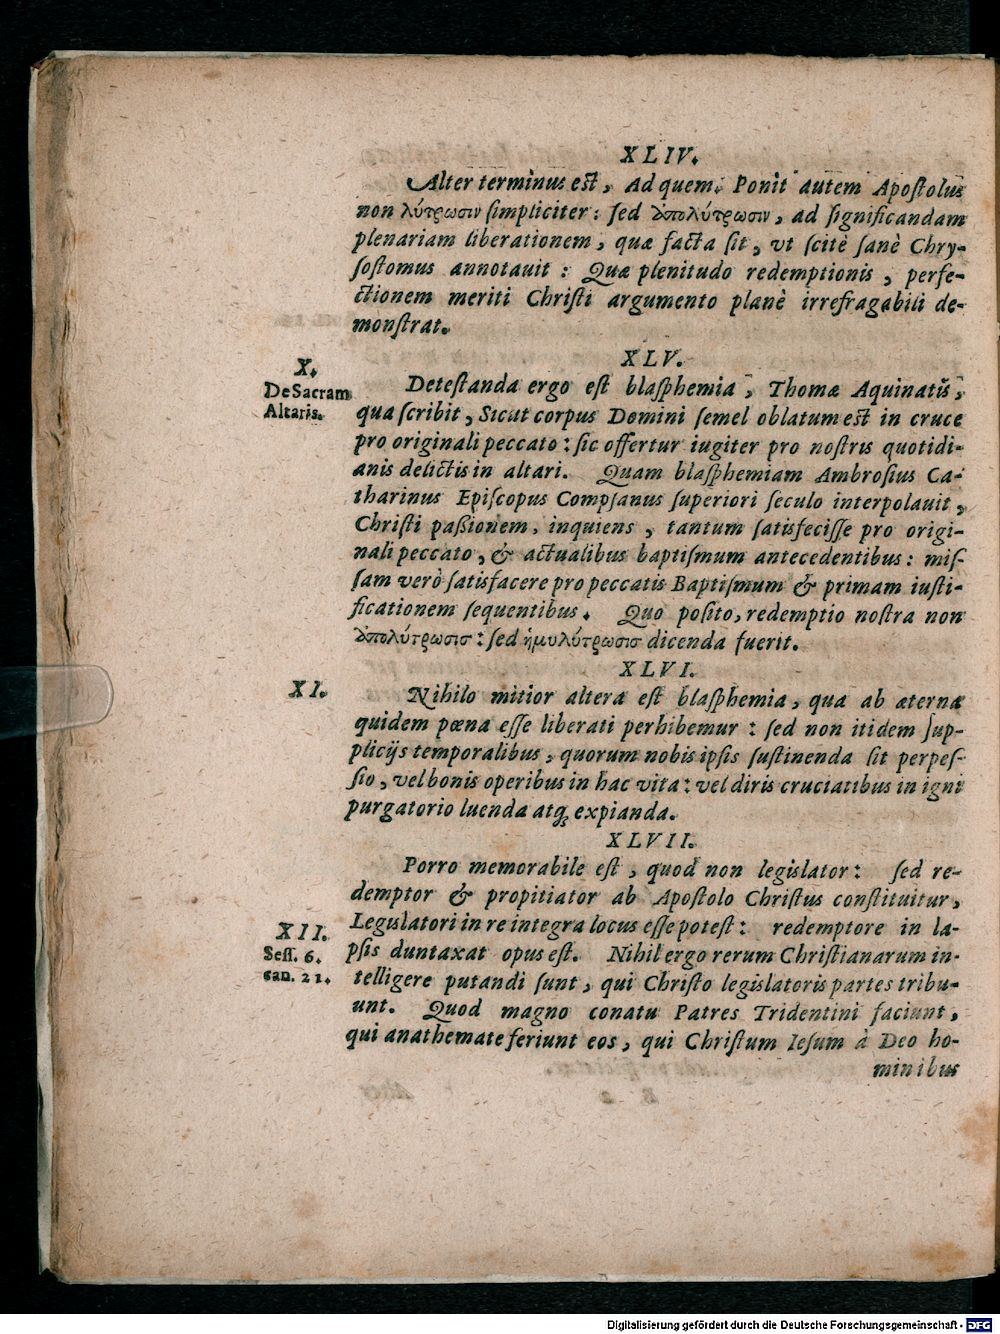 XLIV.
Alter terminus est, Ad quem. Ponit autem Apostolus
non λύτρωσιν simpliciter: sed ἀπολύτρωσιν, ad significandam
plenariam liberationem, quæ facta sit, vt scitè sanè Chry-
sostomus annotauit: Quæ plenitudo redemptionis, perfe-
ctionem meriti Christi argumento planè irrefragabili de-
monstrat.
XLV.
X.
De Sacram
Altaris.
Detestanda ergo est blasphemia, Thomæ Aquinatis,
qua scribit, Sicut corpus Domini semel oblatum est in cruce
pro originali peccato: sic offertur iugiter pro nostris quotidi-
anis delictis in altari. Quam blasphemiam Ambrosius Ca-
tharinus Episcopus Compsanus superiori seculo interpolauit,
Christi paßionem, inquiens, tantum satisfecisse pro origi-
nali peccato, & actualibus baptismum antecedentibus: mis-
sam verò satisfacere pro peccatis Baptismum & primam iusti-
ficationem sequentibus. Quo posito, redemptio nostra non
ἀπολύτρωσισ: sed ἡμυλύτρωσισ dicenda fuerit.
XLVI.
XI.
Nihilo mitior altera est blasphemia, qua ab æterna
quidem pœna esse liberati perhibemur: sed non itidem sup-
plicijs temporalibus, quorum nobis ipsis sustinenda sit perpes-
sio, vel bonis operibus in hac vita: vel diris cruciatibus in igni
purgatorio luenda atq; expianda.
XLVII.
Porro memorabile est, quod non legislator: sed re-
demptor & propitiator ab Apostolo Christus constituitur,
Legislatori in re integra locus esse potest: redemptore in la-
psis duntaxat opus est. Nihil ergo rerum Christianarum in-
XII.
Sess. 6.
can. 21.
telligere putandi sunt, qui Christo legislatoris partes tribu-
unt. Quod magno conatu Patres Tridentini faciunt,
qui anathemate feriunt eos, qui Christum Iesum à Deo ho-
minibus
Digitalisierung gefördert durch die Deutsche Forschungsgemeinschaft - DFG